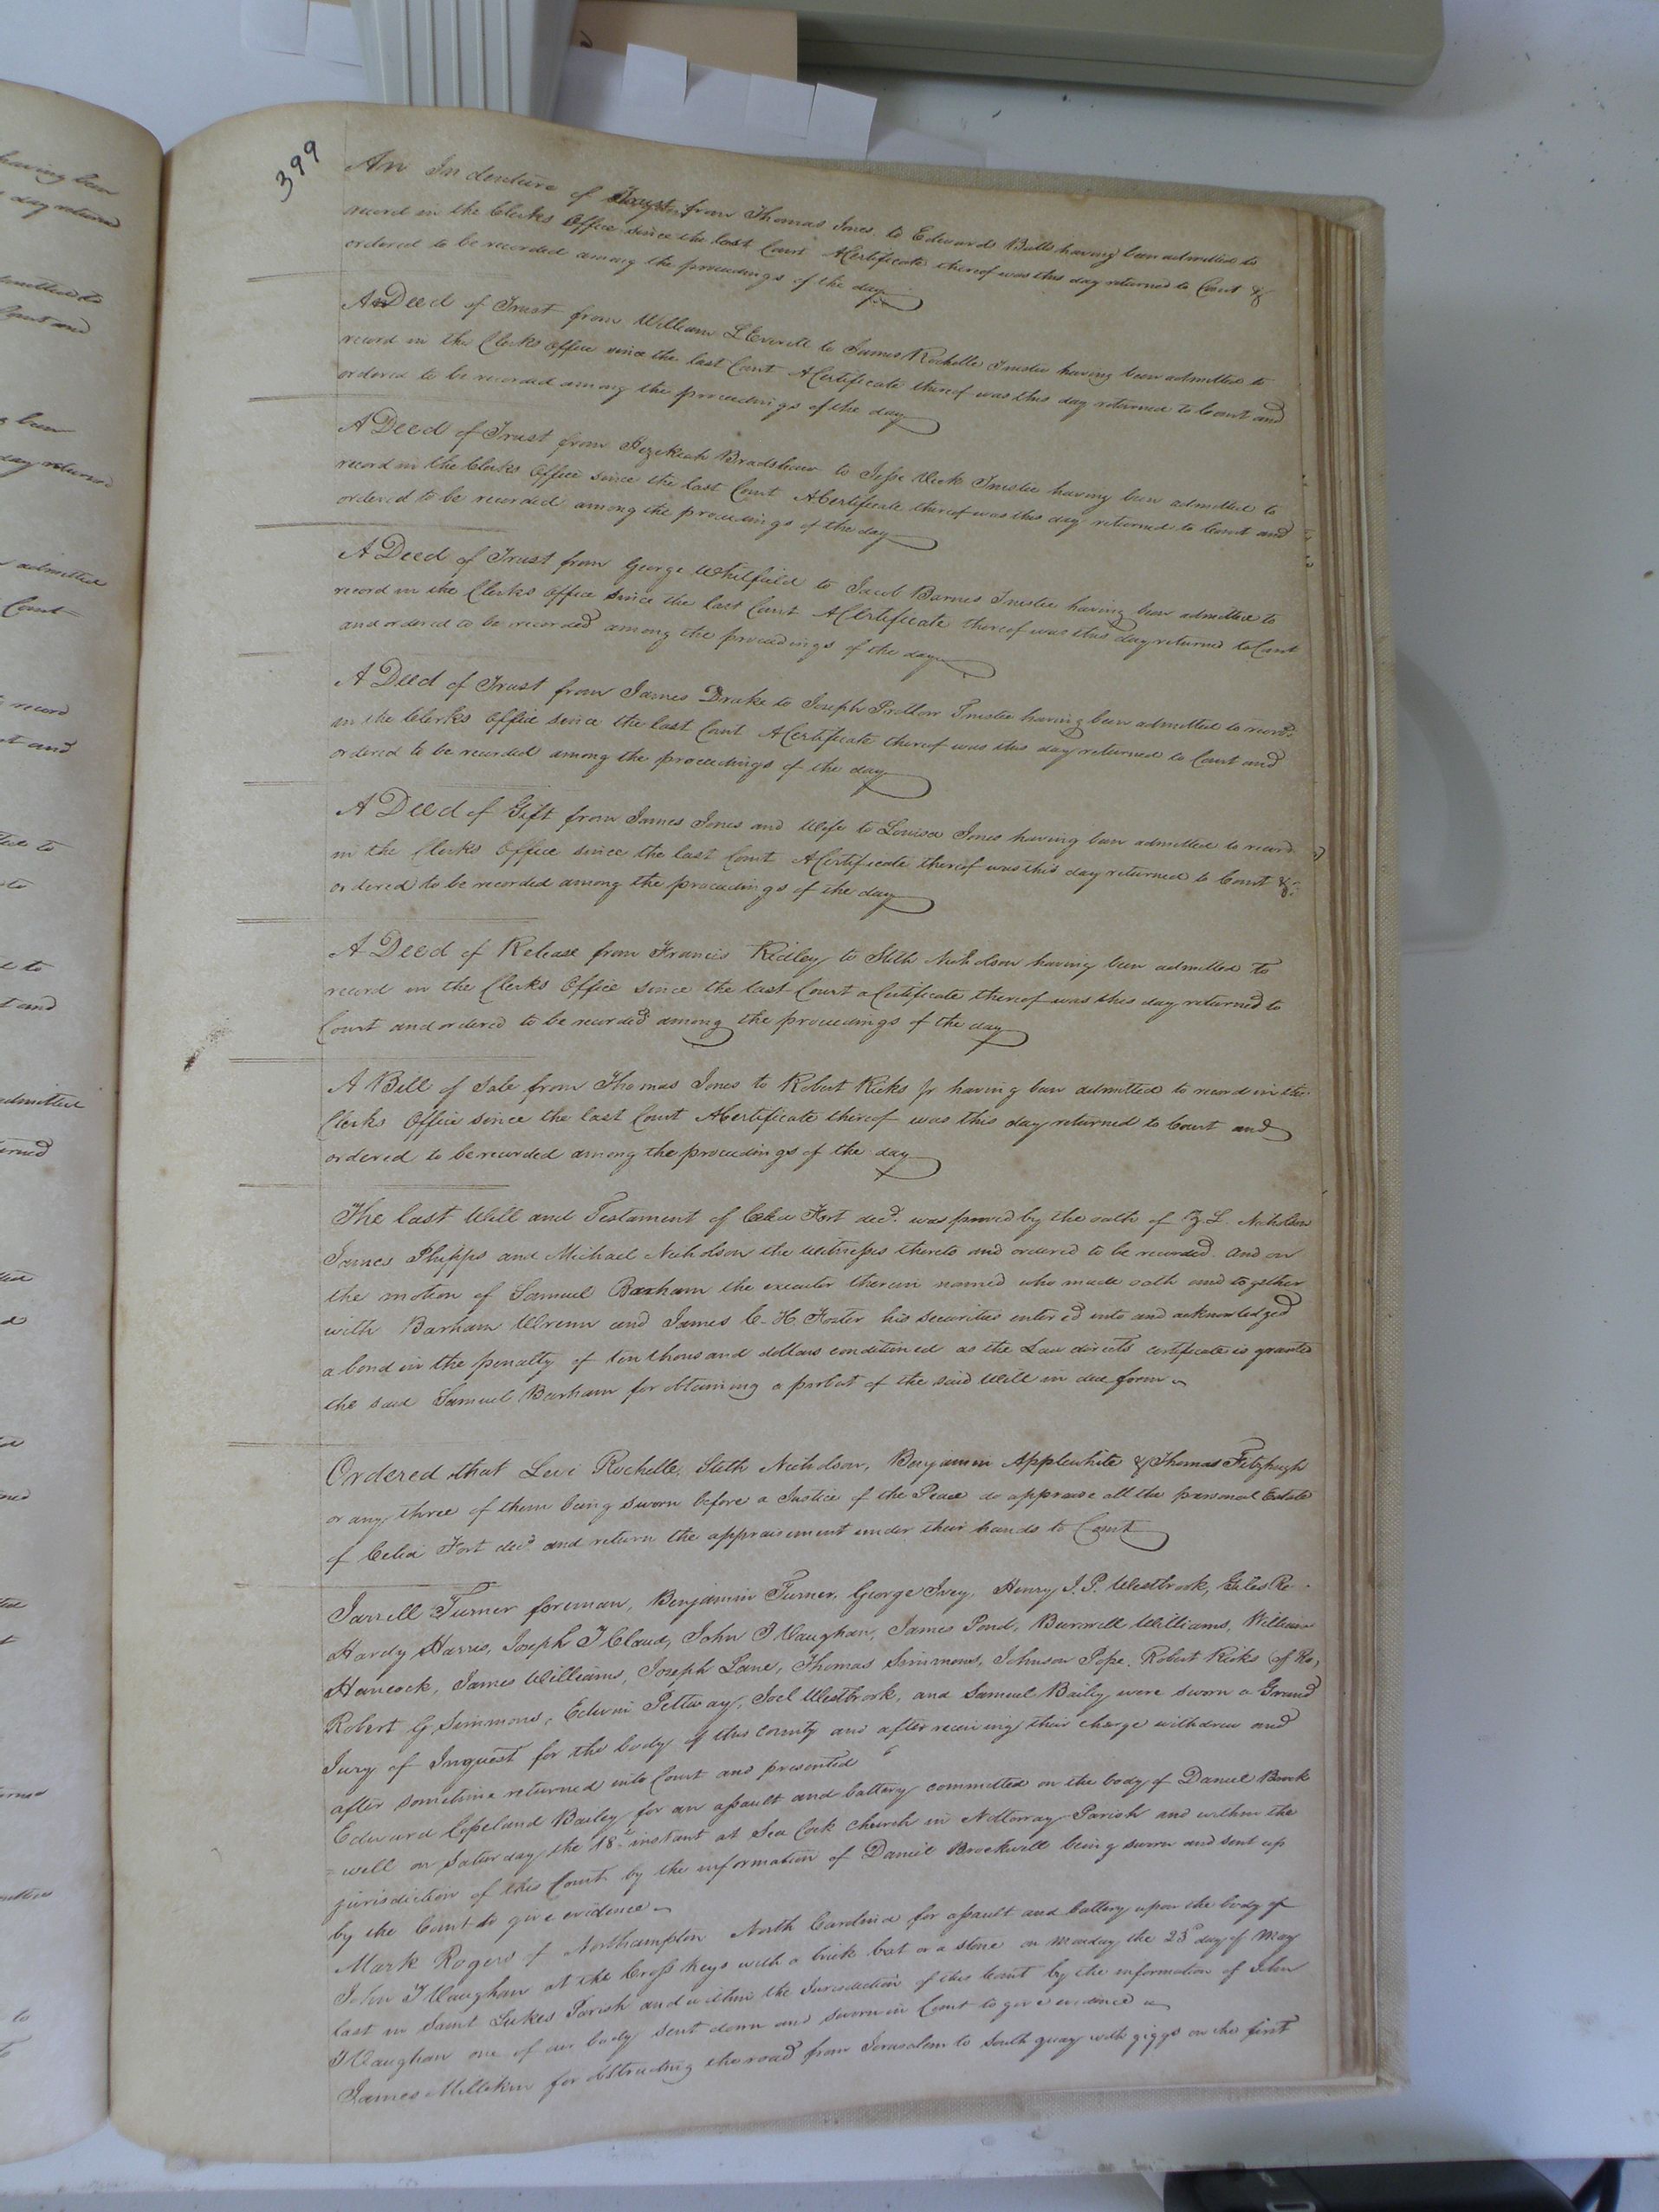 399
An Indenture of Trust from Thomas Jones to Edwards Butts having been admitted to
record in the Clerks Office since the last Court A Certificate thereof was this day returned to Court &
ordered to be recorded among the proceedings of the day
A Deed of Trust from William L Everett to James Rochelle Trustee having been admitted to
record in the Clerks Office since the last Court A Certificate thereof was this day returned to Court and
ordered to be recorded among the proceedings of the day
A Deed of Trust from Hezekiah Bradshaw to Jesse Vick Trustee having been admitted to
record in the Clerks Office since the last Court A Certificate thereof was this day returned to Court and
ordered to be recorded among the proceedings of the day
A Deed of Trust from George Whitfield to Jacob Barnes Trustee having been admitted to
record in the Clerks Office since the last Court A Certificate thereof was this day returned to Court
and ordered to be recorded among the proceedings of the day
A Deed of Trust from James Drake to Joseph Prellow Trustee having been admitted to record
in the Clerks Office since the last Court A Certificate thereof was this day returned to Court and
ordered to be recorded among the proceedings of the day
A Deed of Gift from James Jones and Wife to Louisa Jones having been admitted to record
in the Clerks Office since the last Court A Certificate thereof was this day returned to Court &
ordered to be recorded among the proceedings of the day
A Deed of Release from Francis Ridley to Stith Nicholson having been admitted to
record in the Clerks Office since the last Court a Certificate thereof was this day returned to
Court and ordered to be recorded among the proceedings of the day
A Bill of Sale from Thomas Jones to Robert Ricks Jr having been admitted to record in the
Clerks Office since the last Court A Certificate thereof was this day returned to Court and
ordered to be recorded among the proceedings of the day
The last Will and Testament of Celia Fort decd. was proved by the oath of Z. L. Nicholson
James Phipps and Michael Nicholson the witnesses thereto and ordered to be recorded. And on
the motion of Samuel Barham the executor therein named who made oath and together
with Barham Wrenn and James C. H. Foster his securities entered into and acknowledged
a bond in the penalty of ten thousand dollars conditioned as the Law directs certificate is granted
the said Samuel Barham for obtaining a probat of the said Will in due form
Ordered that Levi Rochelle, Stith Nicholson, Benjamin Applewhite & Thomas Fitzhugh
or any three of them being sworn before a Justice of the Peace do appraise all the personal Estate
of Celia Fort decd and return the appraisement under their hands to Court
Jarrell Turner foreman, Benjamin Turner, George Ivey, Henry J. P. Westbrook, Giles
Hardy Harris, Joseph T Claud, John T Vaughan, James Pond, Burwell Williams, William
Hancock, James Williams, Joseph Lane, Thomas Simmons, Johnson Pope, Robert Ricks (of Ro)
Robert G. Simmons, Edwin Pettway, Joel Westbrook, and Samuel Bailey were sworn a Grand
Jury of Inquest for the body of this County and after receiving their charge withdrew and
after sometime returned into Court and presented
Edward Copeland Bailey for an assault and battery committed on the body of Daniel Brock
=well on Saturday the 18th instant at Sea Cock Church in Nottoway Parish and within the
jurisdiction of this Court by the information of Daniel Brockwell being sworn and sent up
by the Court to give evidence
Mark Rogers of Northampton North Carolina for assault and battery upon the body of
John T Vaughan at the Cross Keys with a brick bat or a stone on Monday the 23d day of May
last in Saint Lukes Parish and within the Jurisdiction of this Court by the information of John
T Vaughan one of our body sent down and sworn in Court to give evidence
James Millikin for obstructing the road from Jerusalem to South quay with giggs on the first